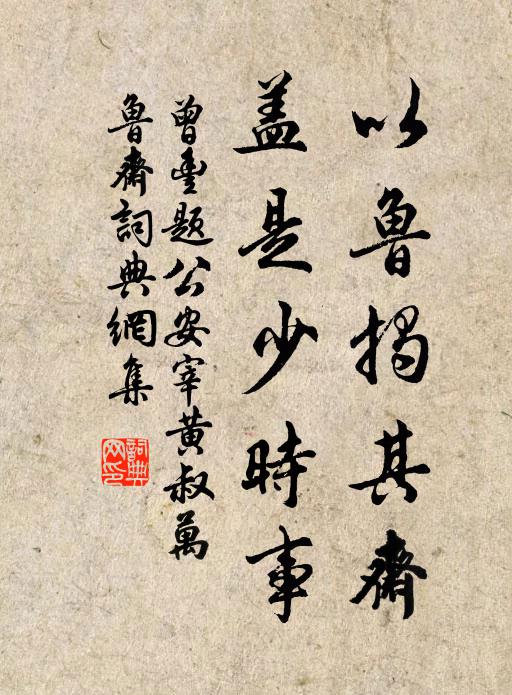 以魯揭其齋
蓋是少時事
曾豐題公安宰黃叔萬
魯齋詞典網集
詞典網印